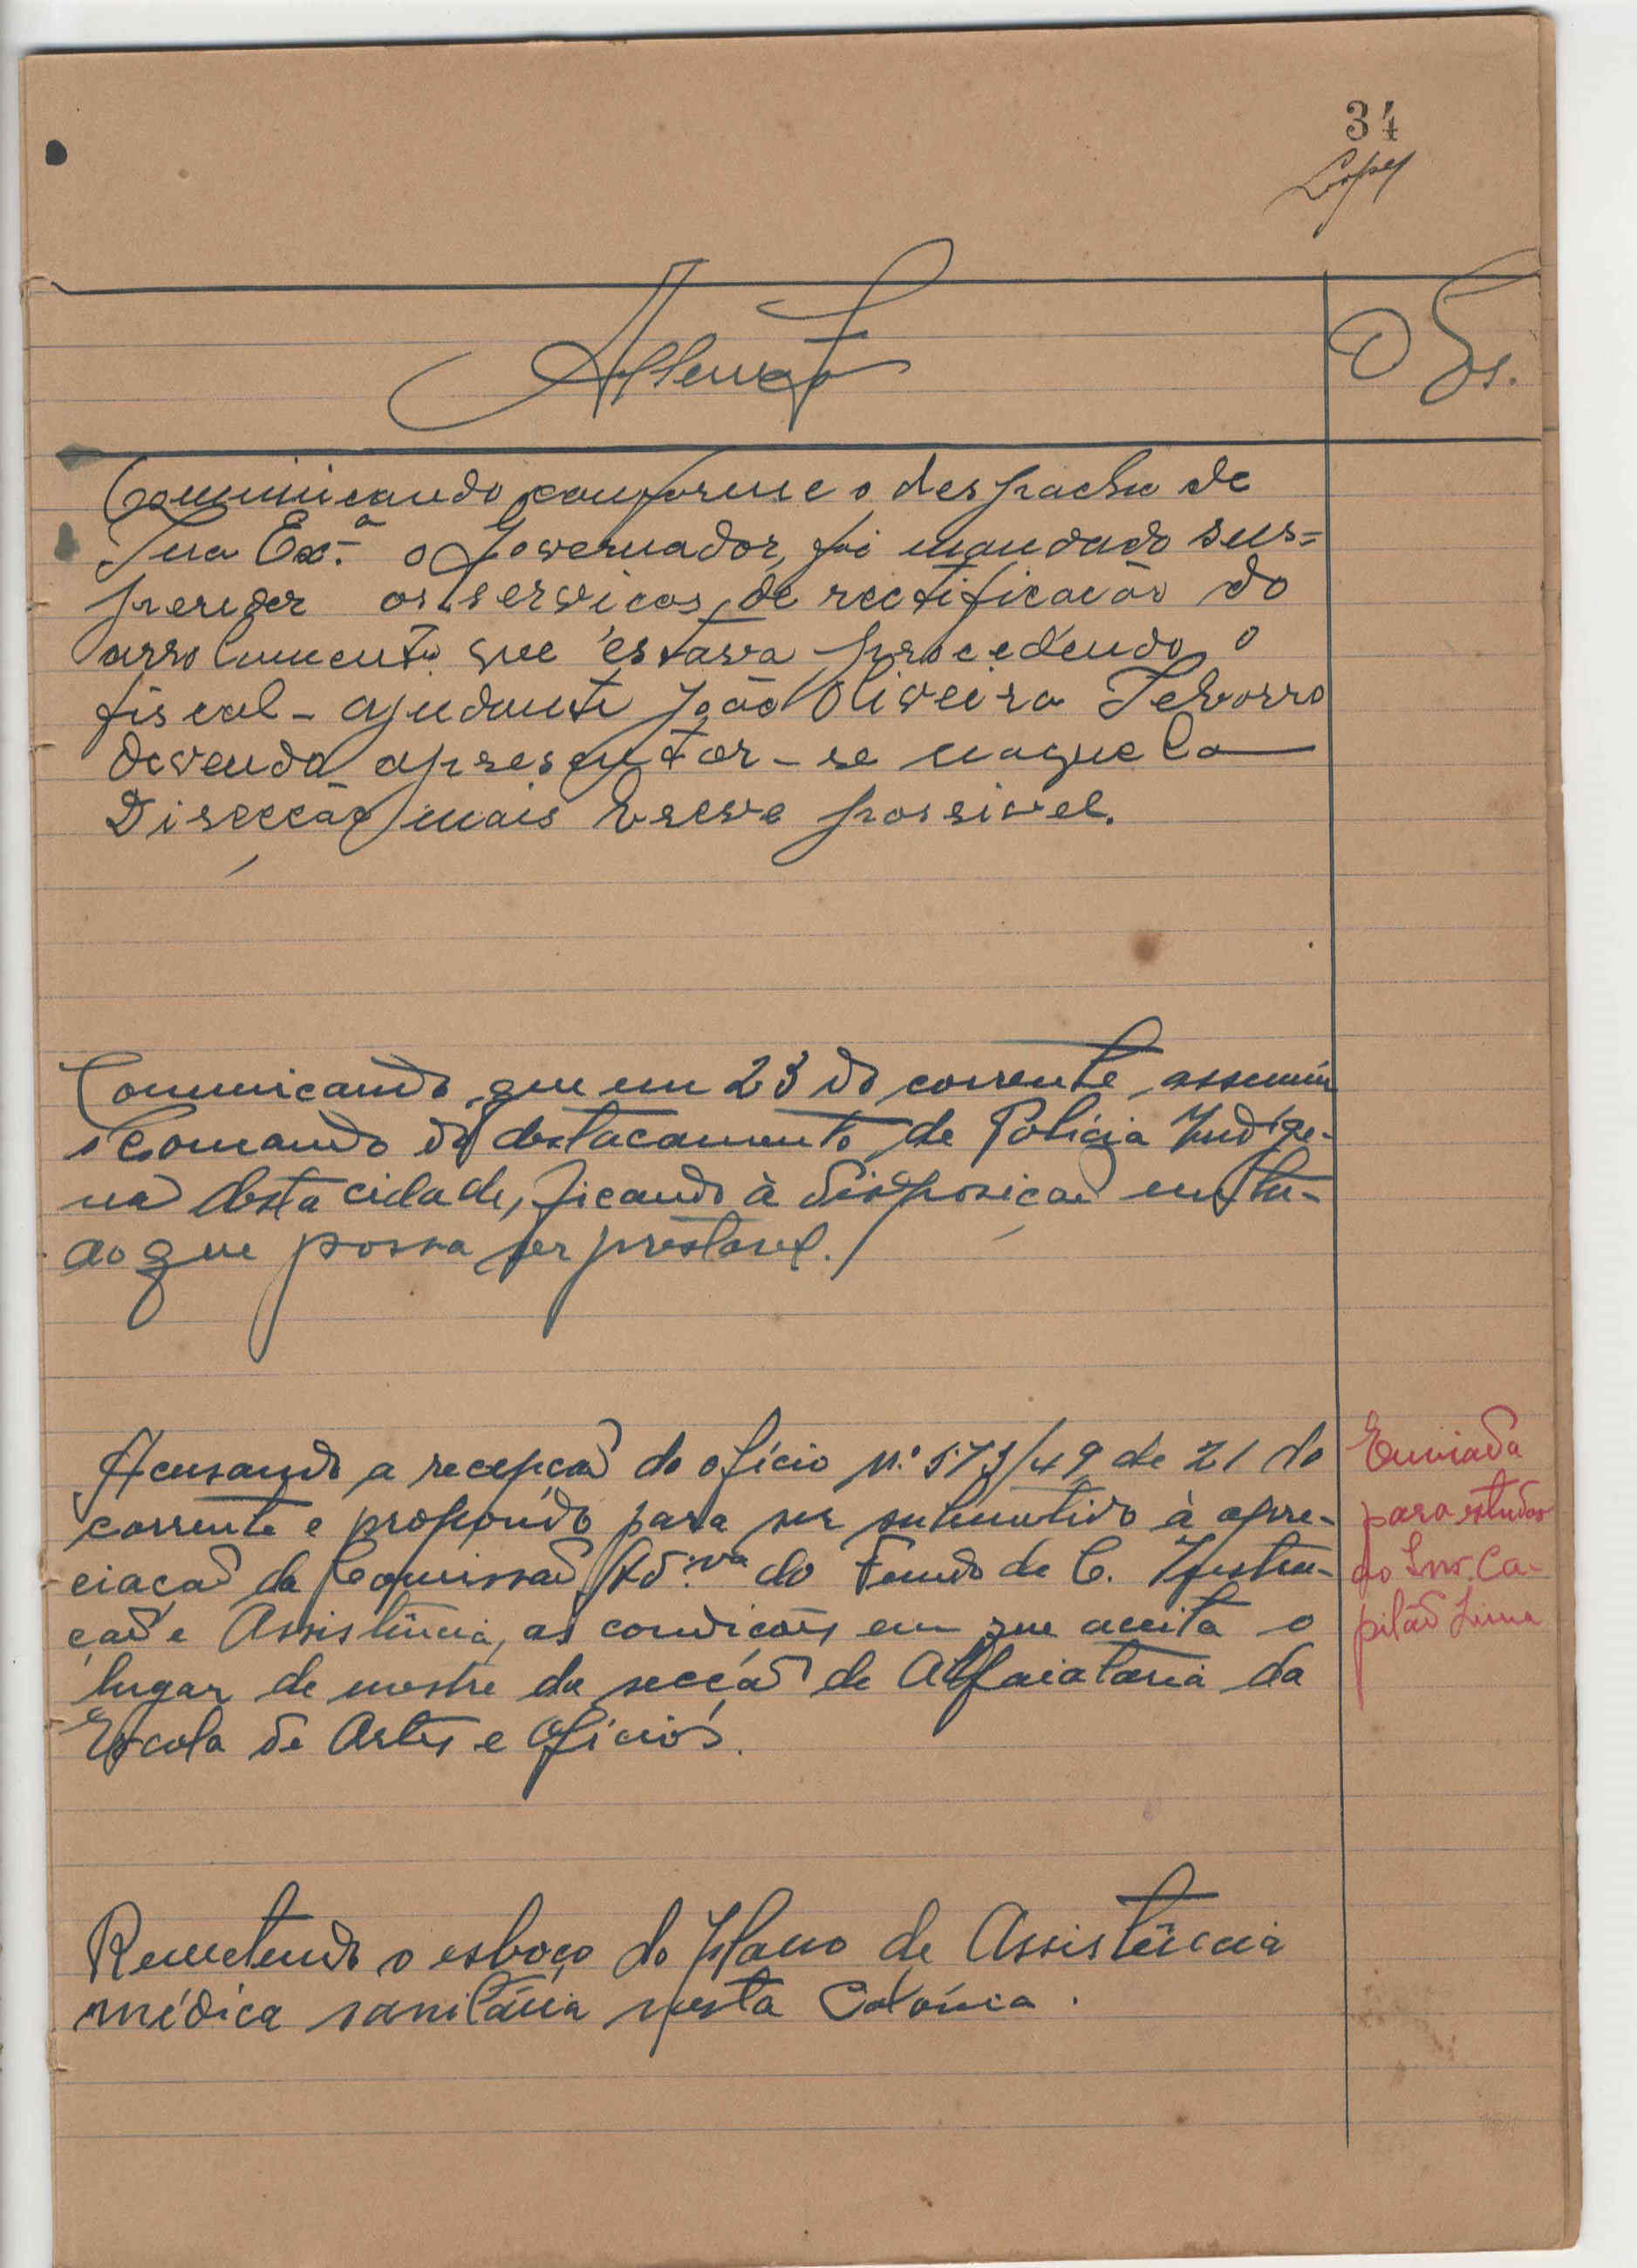 34
Lopes
Obs.
Comunicando conforme o despacho de
Sua Ex.ª o Governador, foi mandado sus=
pender os serviços de rectificação do
arrolamento que estava procedendo o
fiscal-ajudante João Oliveira
devendo apresentar-se naquela
Direcção mais breve possivel.
Comunicando que em 23 do corrente, assumiu
o Comando do destacamento de Polícia Indíge-
na desta cidade, ficando à disposição em tu-
do que possa ser prestavel.
Acusando a recepção do ofício n.º 573/49 de 21 do
corrente e propondo para ser submetido à apre-
ciação da Comissão Ad.va do Fundo de C. Instru-
ção e Assistência, as condições em que aceita o
lugar de mestre da secção de Alfaiataria da
Escola de Artes e Ofícios.
Enviada
para estudos
do Snr. Ca-
pitão Lima
Remetendo o esboço do Plano de Assistência
médica sanitária nesta Colónia.